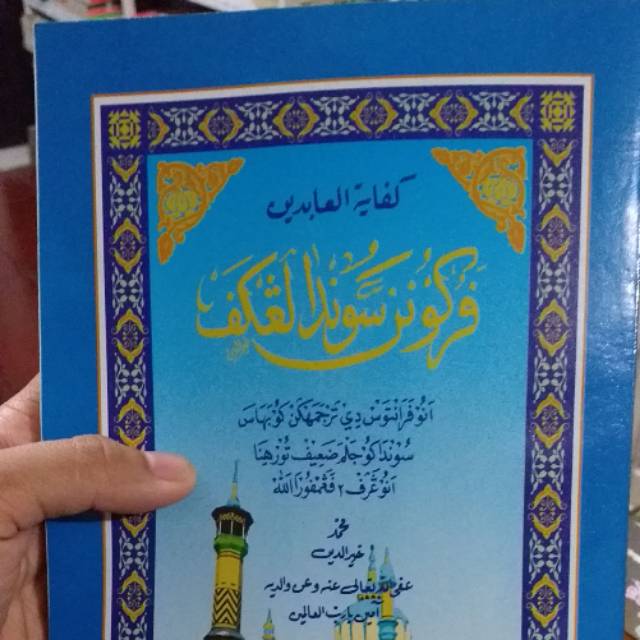 كفاية العابدين
فركونن سوندا لڠكف
انو فرانتوس دي ترجمهكن كو بهاس
سوندا كو جلم ضعيف تور هينا
انو ڠرف ٢ فڠمفورا الله
محمد
خيرالدين
عفى الله تعالى عنه وعن والديه
آمين يا رب العالمين